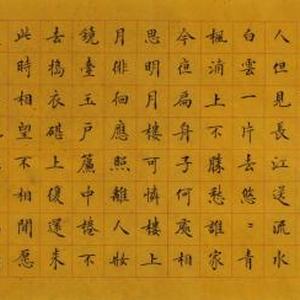 人但見長江送流水
白雲一片去悠〻青
楓浦上不勝愁誰家
今夜扁舟子何處相
思明月樓可憐樓上
月俳佪應照離人妝
鏡臺玉戶簾中捲不
去搗衣碪上復還来
此時相望不相聞愿